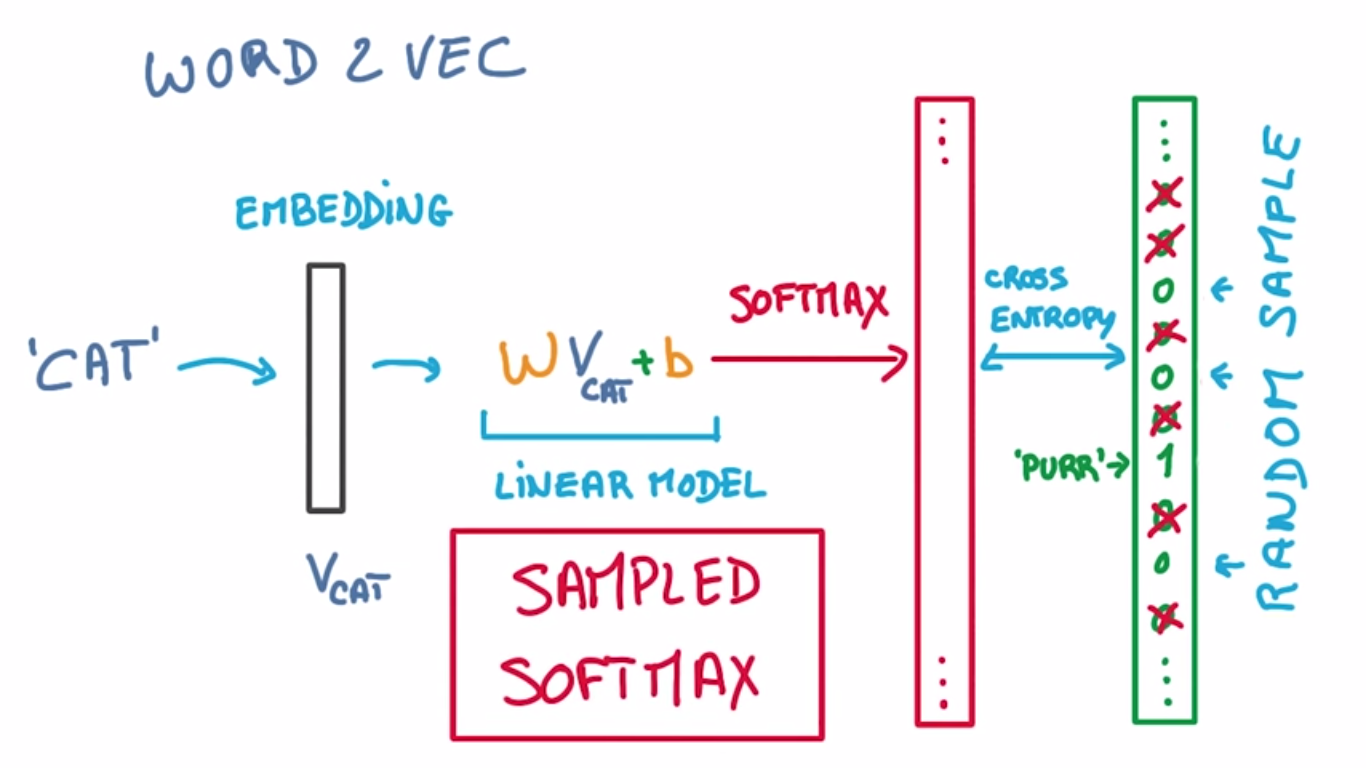 WORD 2 VEC
EMBEDDING
'CAT'
V CAT
W V CAT + b
LINEAR MODEL
SAMPLED
SOFTMAX
SOFTMAX
CROSS
ENTROPY
'PURR'
⋮
0
0
0
0
0
0
1
0
0
0
⋮
RANDOM SAMPLE